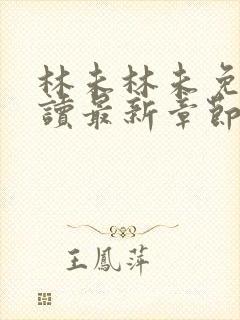 林未林未免
讀最新章節
王鳳萍